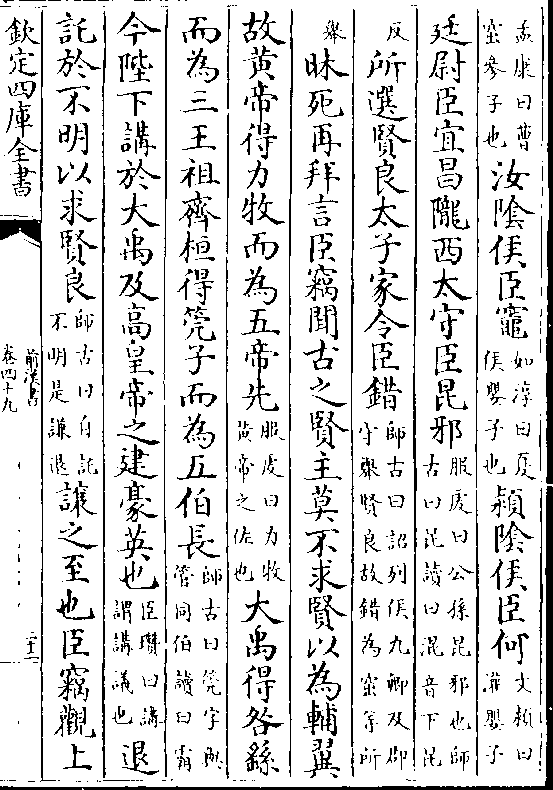 孟康曰曹
窋參子也
汝陰侯臣竈
如淳曰夏
侯嬰子也
潁陰侯臣何
文穎曰
灌嬰子
廷尉臣宜昌隴西太守臣昆邪
服䖍曰公孫昆邪也師
古曰昆讀曰混音下昆
反
所選賢良太子家令臣錯
師古曰詔列侯九卿及郡
守舉賢良故錯為窋等所
舉
昧死再拜言臣竊聞古之賢主莫不求賢以為輔翼
故黄帝得力牧而為五帝先
服䖍曰力牧
黄帝之佐也
大禹得咎繇
而為三王祖齊桓得筦子而為五伯長
師古曰筦字與
管同伯讀曰霸
今陛下講於大禹及高皇帝之建豪英也
臣瓚曰講
謂講議也
退
託於不明以求賢良
師古曰自託
不明是謙退
讓之至也臣竊觀上
欽定四庫全書
前漢書
卷四十九